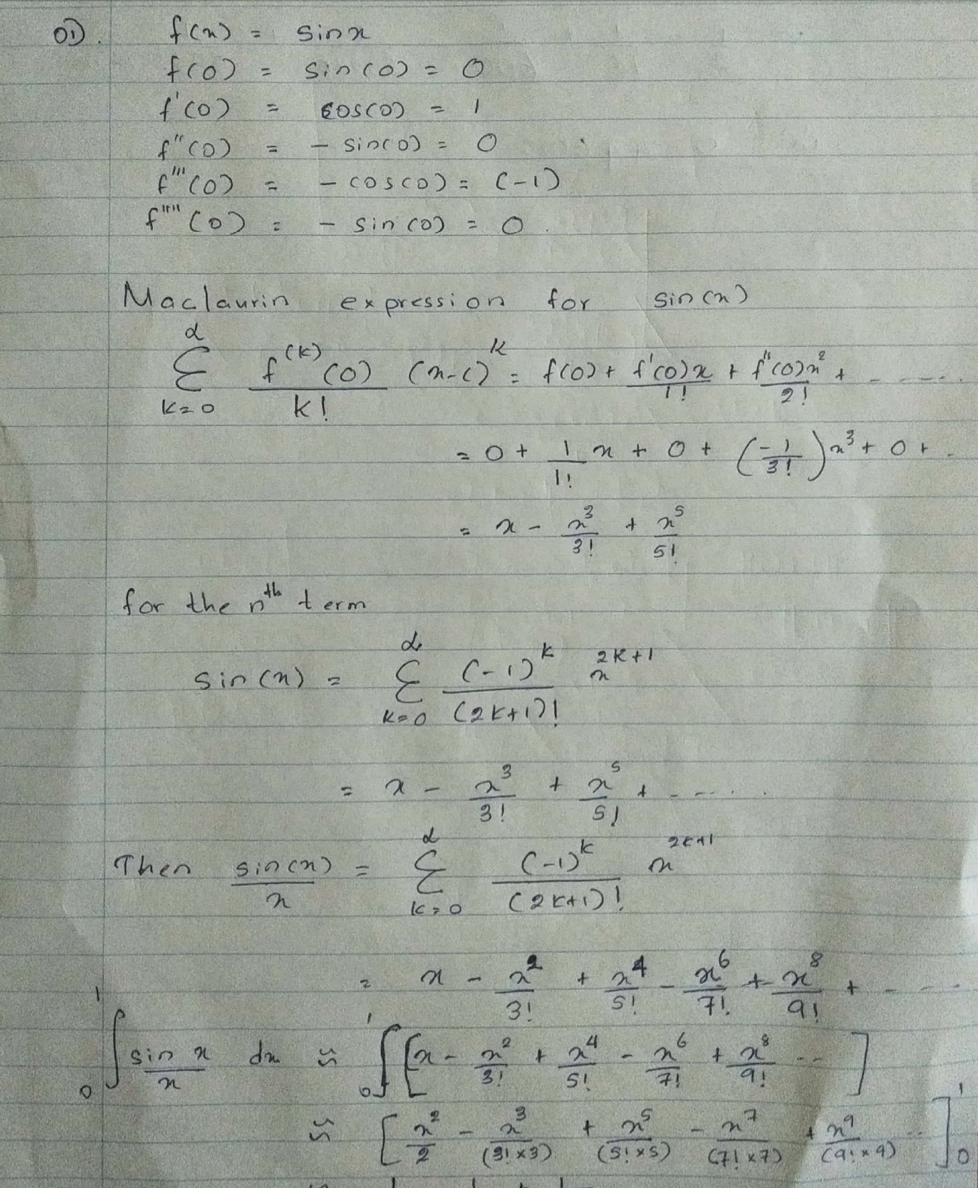 01). f(x) = sin x
f(0) = sin(0) = 0
f'(0) = cos(0) = 1
f''(0) = - sin(0) = 0
f'''(0) = - cos(0) = (-1)
f'''''(0) = - sin(0) = 0.
Maclaurin expression for sin(x)
∑_{k=0}^{α} f^{(k)}(0)/k! (x-c)^k = f(0) + f'(0)x/1! + f''(0)x^2/2! + - - - - -
= 0 + 1/1! x + 0 + (-1/3!) x^3 + 0 + .
= x - x^3/3! + x^5/5!
for the n^th term
sin(x) = ∑_{k=0}^{α} (-1)^k/(2k+1)! x^{2k+1}
= x - x^3/3! + x^5/5! + - - - . .
Then sin(x)/x = ∑_{k=0}^{α} (-1)^k/(2k+1)! x^{2k+1}
= x - x^2/3! + x^4/5! - x^6/7! + x^8/9! + - - - -
∫_0^1 sin x/x dx ≈ ∫_0^1 [x - x^2/3! + x^4/5! - x^6/7! + x^8/9! - -]
≈ [x^2/2 - x^3/(3!×3) + x^5/(5!×5) - x^7/(7!×7) + x^9/(9!×9) - -]_0^1